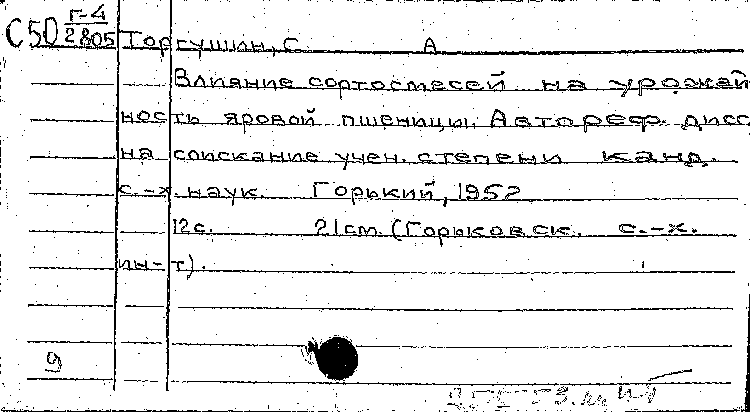 С50 Г-4
2805 Торгушин, С А
Влияние сортосмесей на урожай
ность яровой пшеницы. Автореф. дисс.
на соискание учен. степени канд.
с.-х. наук. Горький, 1952
12с. 21см. (Горьковск. с.-х.
ин-т).
9